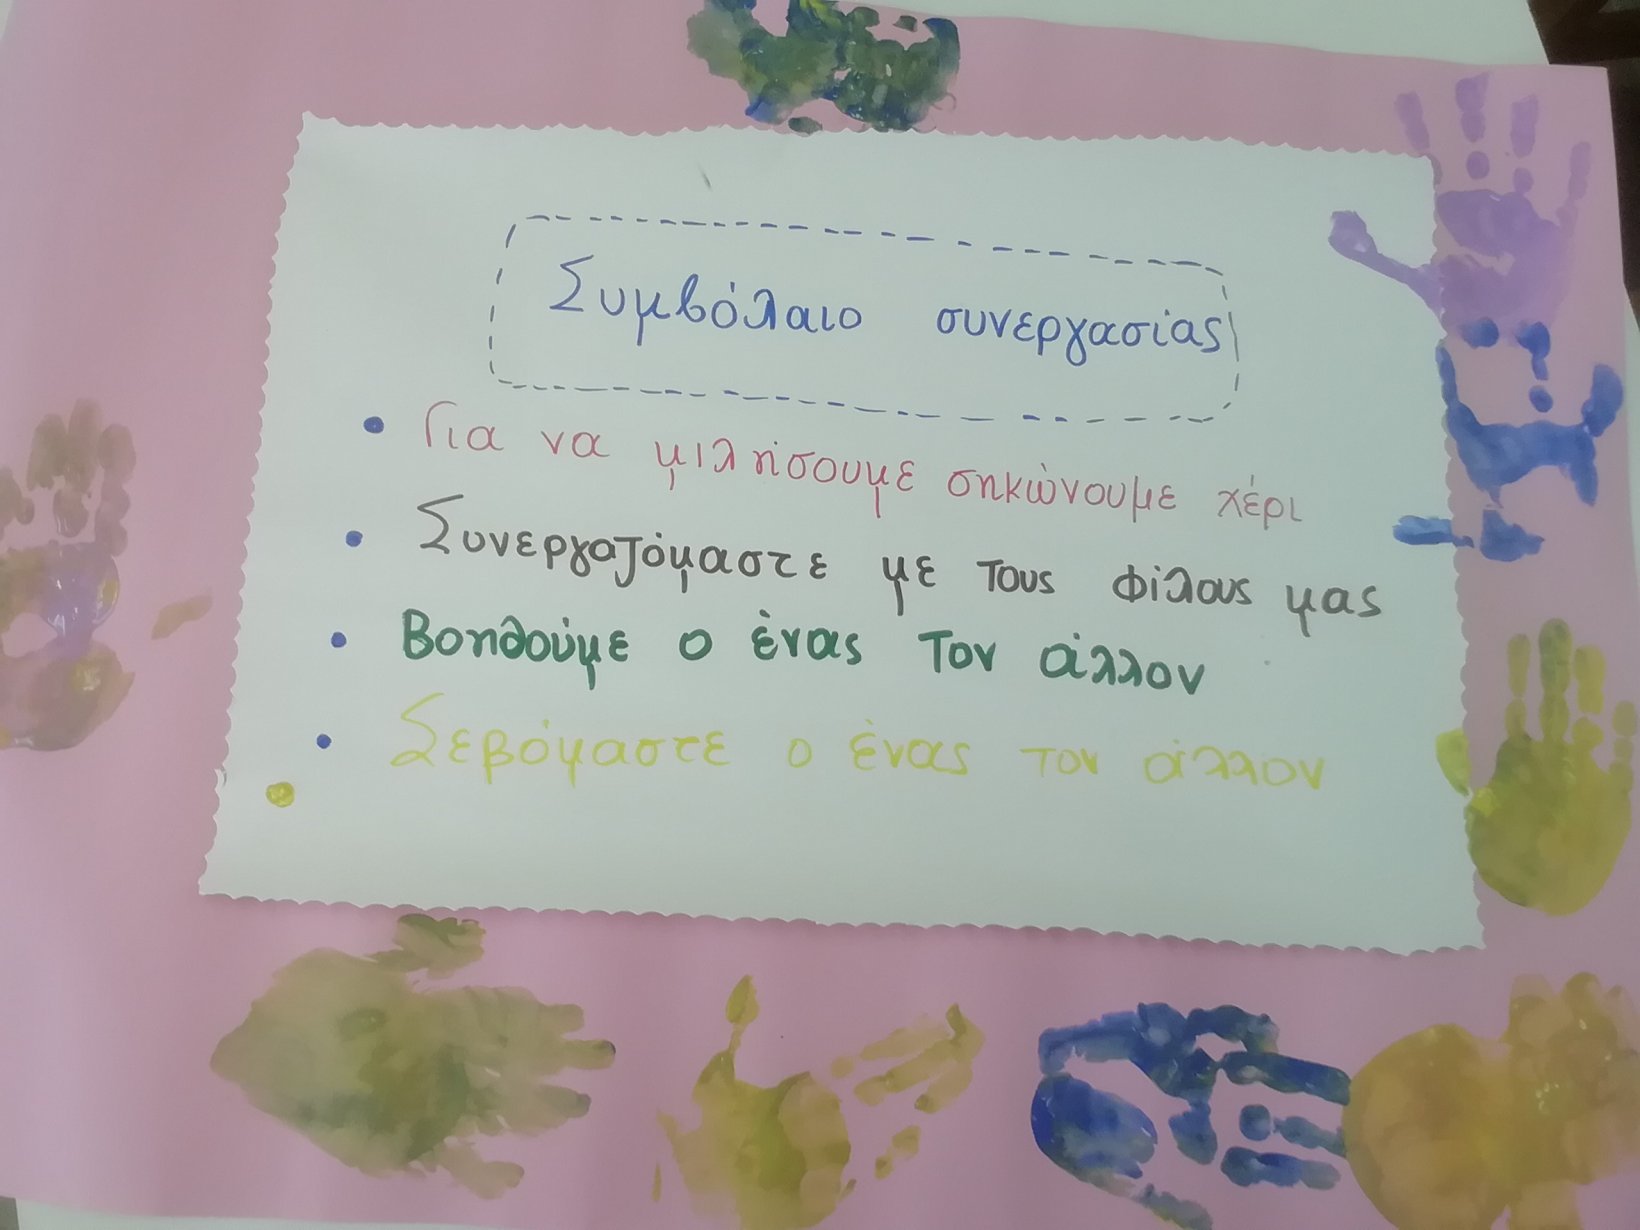 Συμβόλαιο συνεργασίας
Για να μιλήσουμε σηκώνουμε χέρι
Συνεργαζόμαστε με τους φίλους μας
Βοηθούμε ο ένας τον άλλον
Σεβόμαστε ο ένας τον άλλον